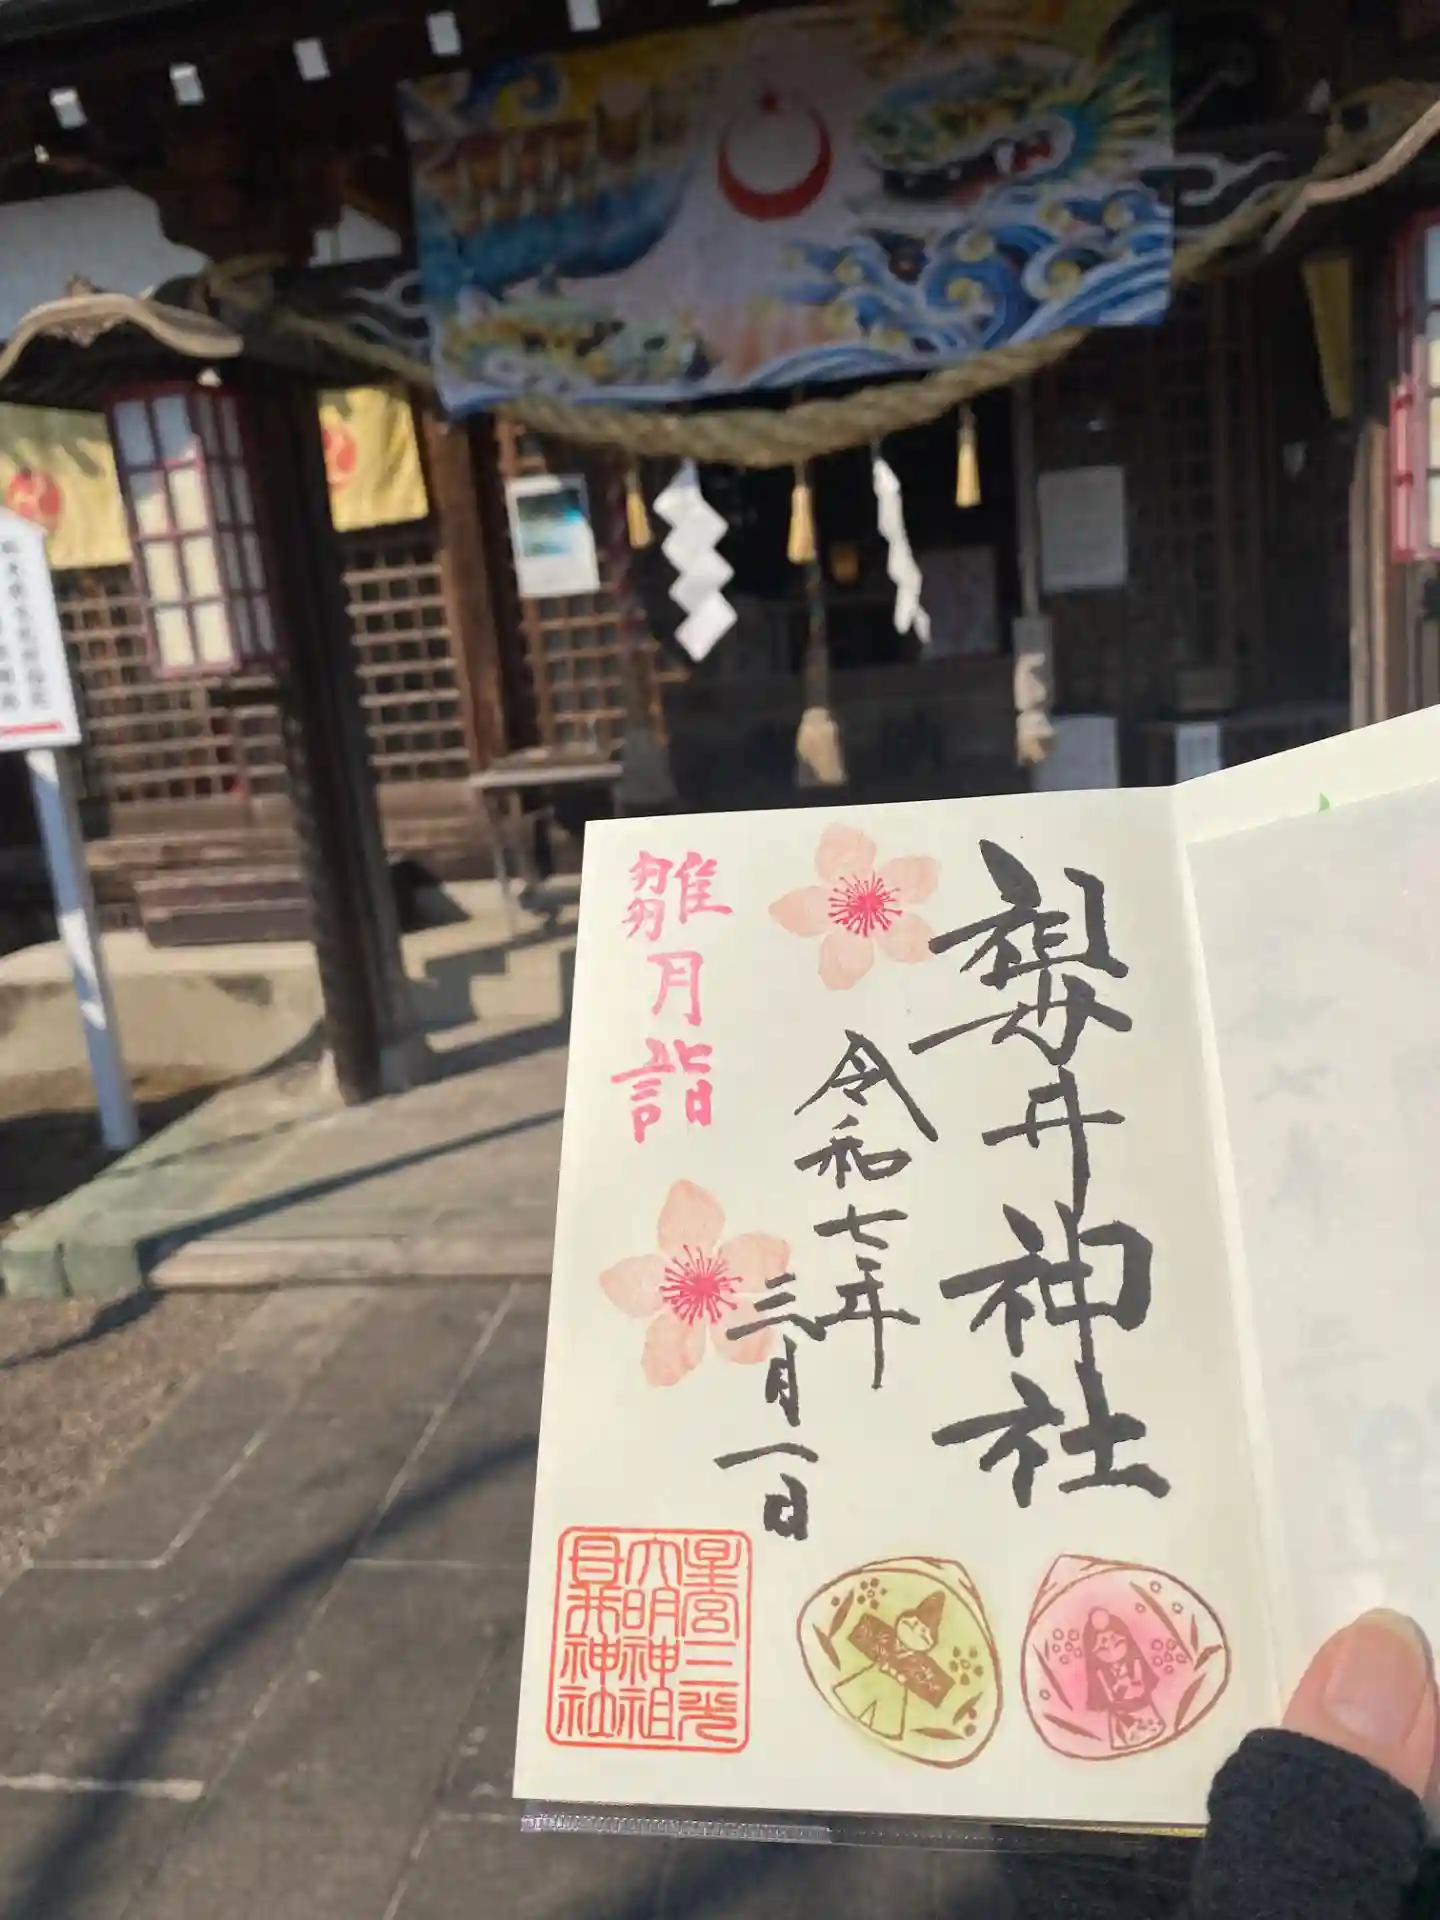 祖母井神社
令和七年
三月一日
雛月詣
星宮三光
大明神祖
母井神社